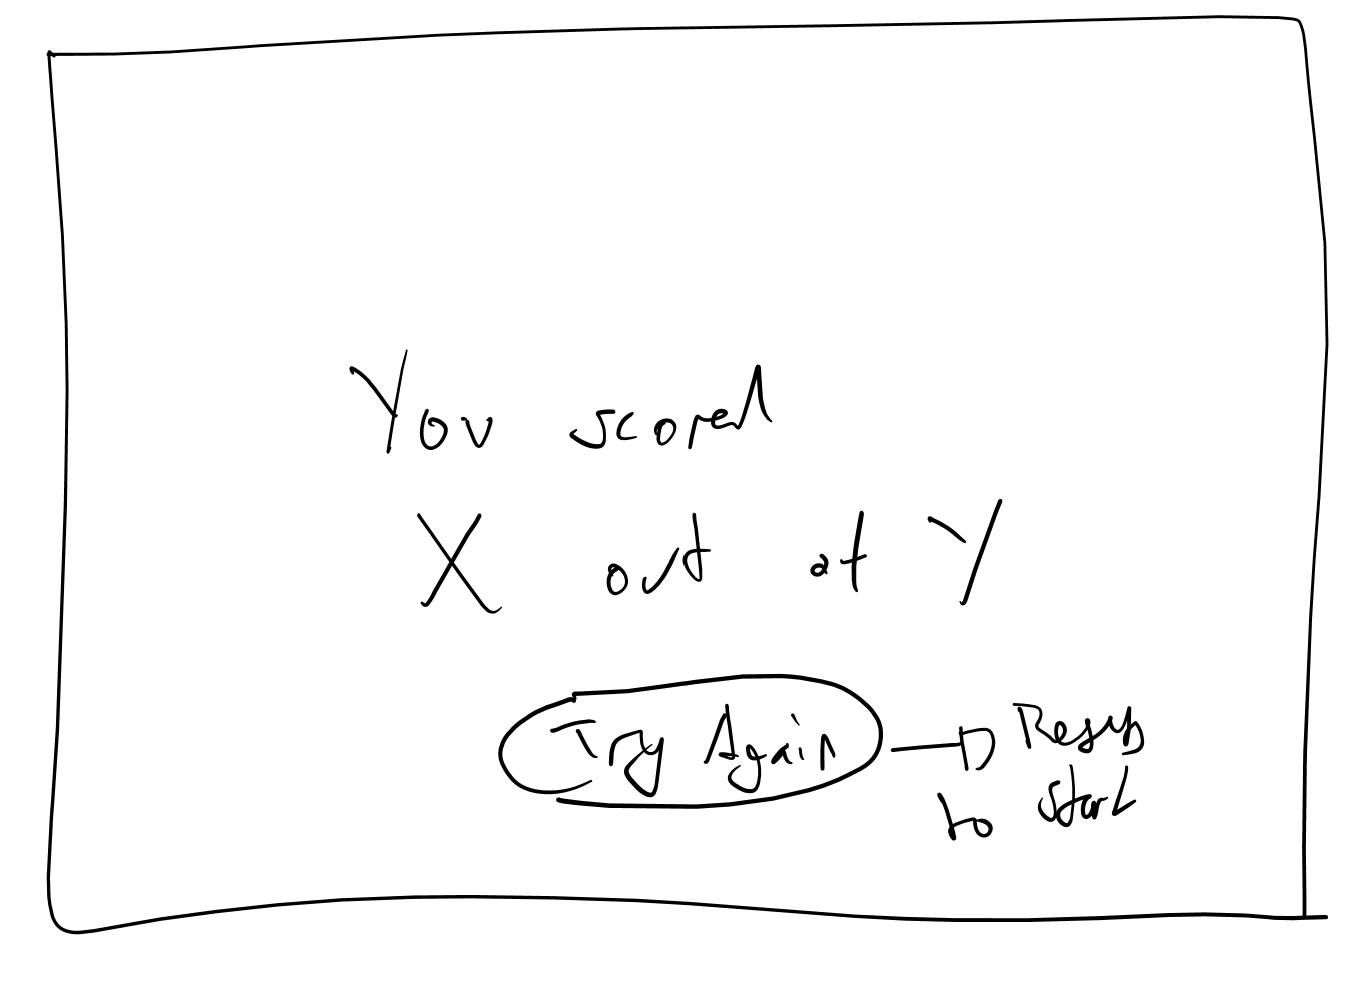 You scored
X out of Y
Try Again
Resets
to start